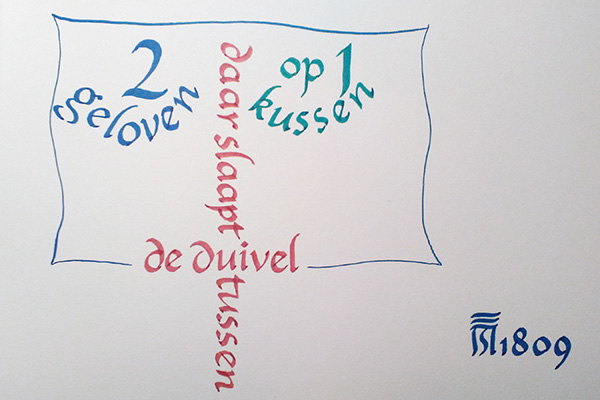 2
geloven
op 1
kussen
daar slaapt
de duivel
tussen
1809